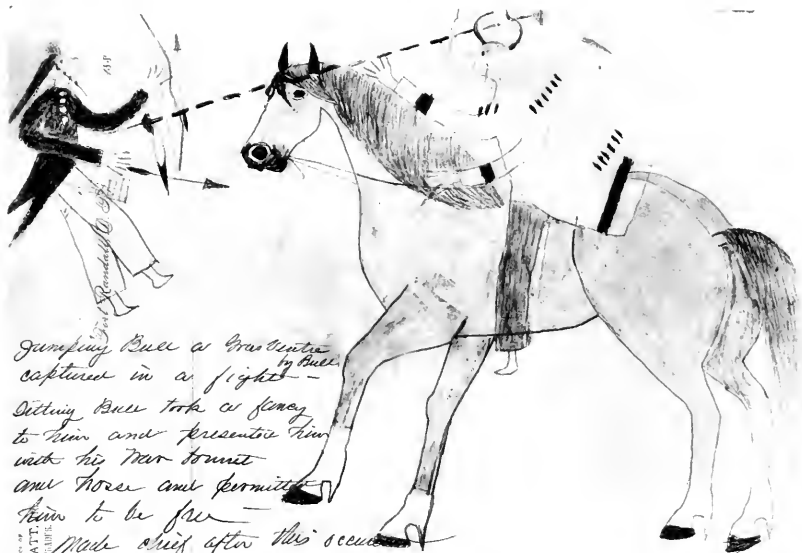 Fort Randall D.
Jumping Bull a Grosventre
by Bull
captured in a fight –
Sitting Bull took a fancy
to him and presented him
with his War bonnet
and horse and permitted
him to be free –
Made chief after this
ATT.